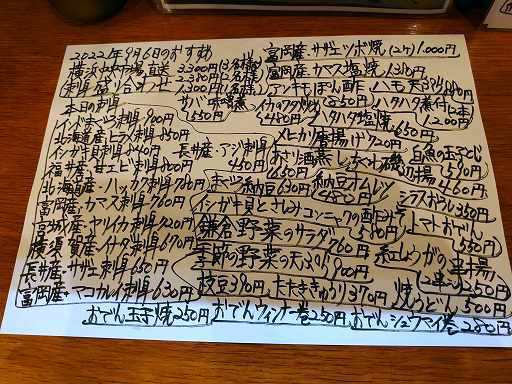 2022年9月6日のおすすめ
横浜中央市場直送
刺身盛り合わせ
3,300円(3名様)
2,380円(2名様)
1,300円(1名様)
本日の刺身
インドまぐろ刺身900円
北海道産ヒラメ刺身850円
イシガキ貝刺身640円
福井産・甘エビ刺身800円
北海道産・ハッカク刺身780円
富岡産・カマス刺身760円
宮城産・ヤリイカ刺身720円
横須賀産・イナダ刺身690円
長井産・サザエ刺身650円
富岡産・マコカレイ刺身630円
サバ味噌煮
550円
長井産・アジ刺身
450円
富岡産・サザエツボ焼(2ケ)1,000円
富岡産・カマス塩焼1,380円
アンキモぽん酢850円
ハモ天ぷら880円
イカのワタ焼
480円
ハタハタ塩焼650円
ハタハタ煮付(2本)
1,200円
メヒカリ唐揚げ720円
あさり酒蒸し
660円
ちくわ磯辺揚
480円
白魚の玉子とじ
590円
まぐろ納豆630円
納豆オムレツ
460円
シラスおろし350円
イシガキ貝とさしみコンニャクの酢みそ
550円
トマトおでん
550円
鎌倉野菜のサラダ760円
季節の野菜の天ぷら900円
紅しょうがの串揚
(2本)250円
枝豆390円
たたききゅうり370円
焼うどん500円
おでん玉子焼250円
おでんウィンナー巻250円
おでんシュウマイ巻280円